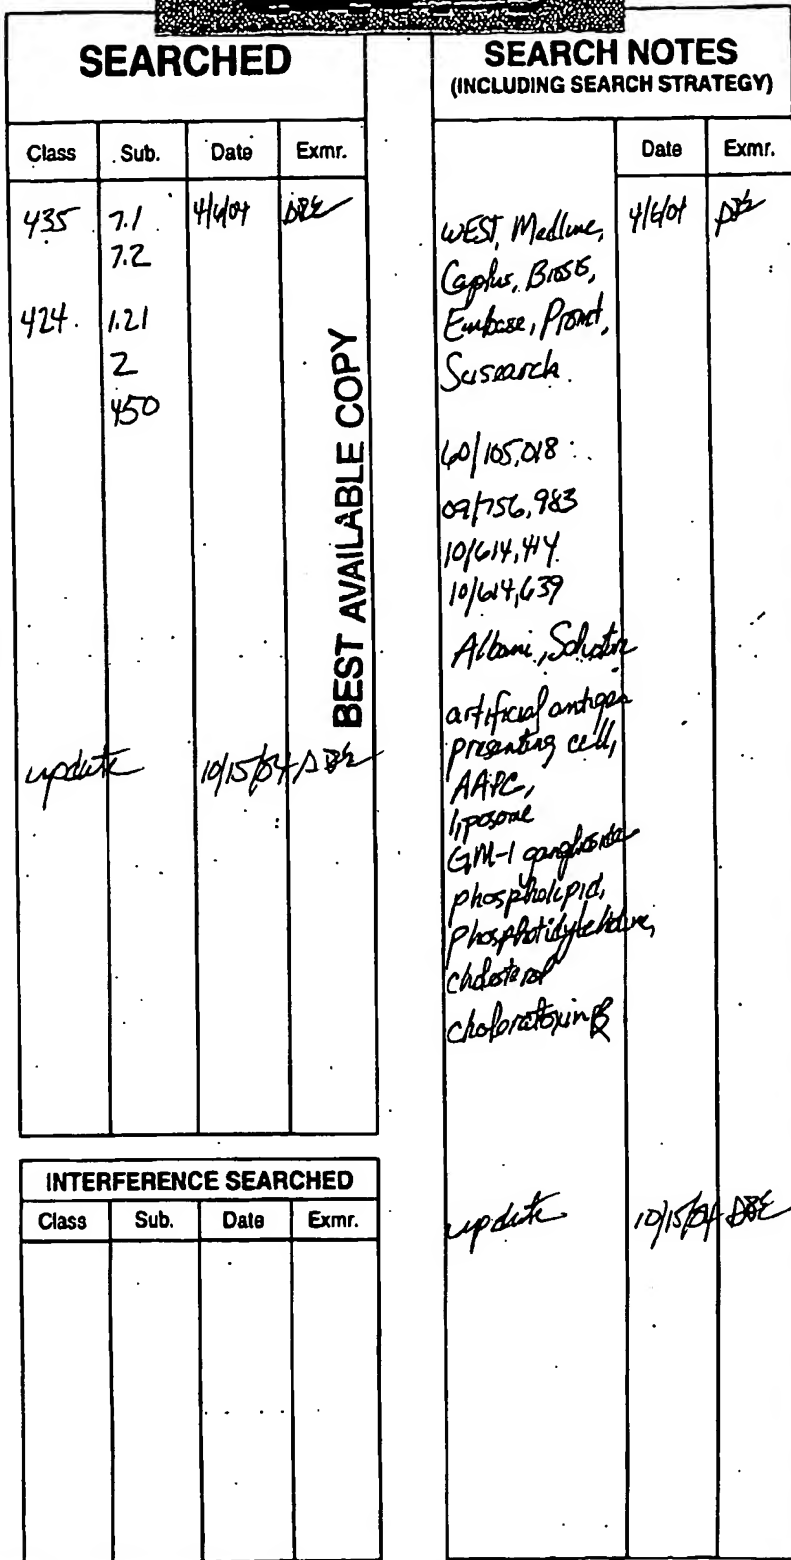 SEARCHED
Class Sub. Date Exmr.
435 7.1 4/6/04 DBE
7.2
424. 1.21
2
450
update 10/15/04 DBE
BEST AVAILABLE COPY
INTERFERENCE SEARCHED
Class Sub. Date Exmr.
SEARCH NOTES
(INCLUDING SEARCH STRATEGY)
Date Exmr.
WEST, Medline, 4/6/04 DBE
Caplus, Biosis,
Embase, Promt,
Scisearch.
60/105,018
09/756,983
10/614,414
10/614,639
Albani, Salvatore
artificial antigen
presenting cell,
AAPC,
liposome
GM-1 ganglioside
phospholipid,
phosphotidylcholine,
cholesterol
choleratoxin B
update 10/15/04 DBE